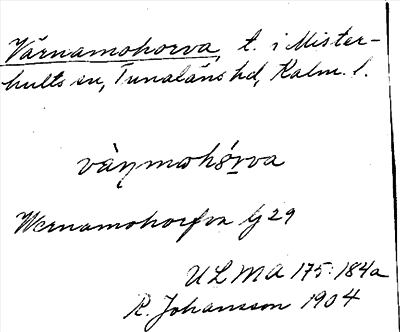 Värnamohorva, t. i Mister-
hults sn, Tunaläns hd, Kalm. l.
vàṇmohó̱rva
Wernamohorfva Gj 29
ULMA 175:184a
R. Johansson 1904